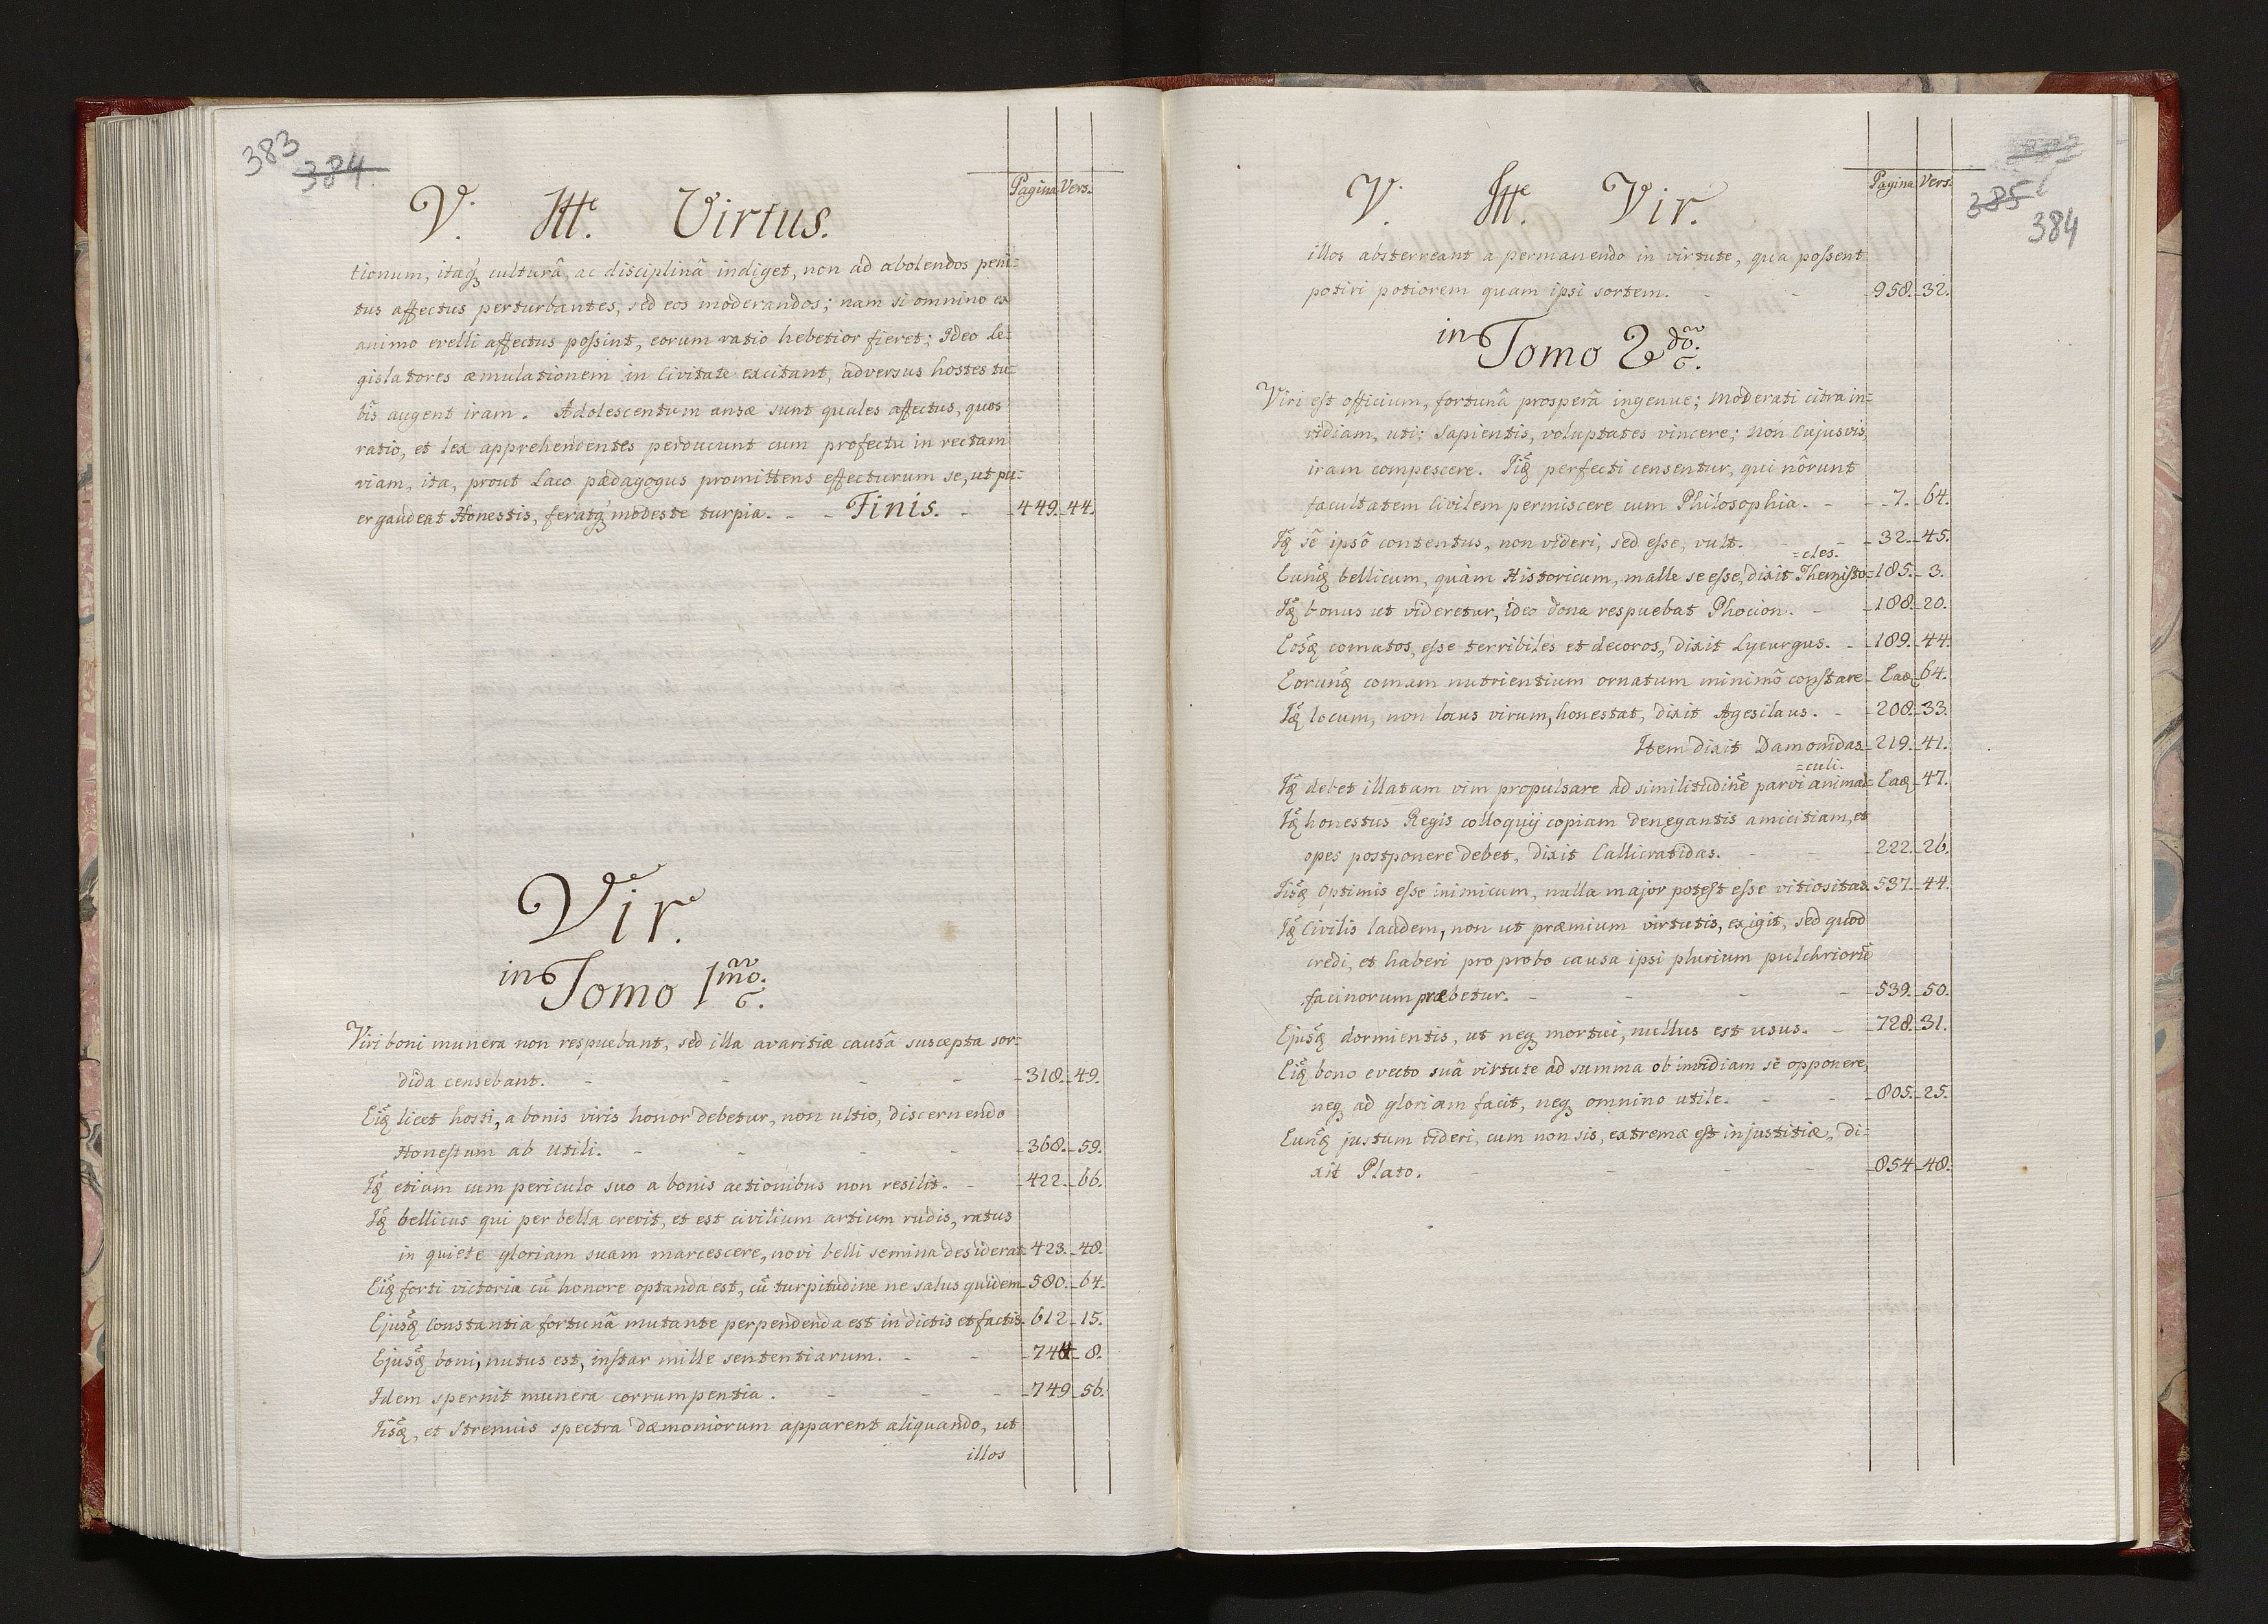 383
384
Pagina Vers.
V. Itte. Virtus.
tionum, itaq́ȝ culturâ, ac disciplinâ indiget, non ad abolendos peni:
tus affectus perturbantes, sed eos moderandos; nam si omnino ex
animo evelli affectus poſsint, eorum ratio hebetior fieret; Ideo le:
gislatores æmulationem in Civitate excitant, adversus hostes tu:
bis augent iram. Adolescentum ansæ sunt quales affectus, quos
ratio, et lex apprehendentes perducunt cum profectu in rectam
viam, ita, prout Laco pædagogus promittens effecturum se, ut pu:
er gaudeat Honestis, feratq́ȝ modeste turpia. - - Finis. - 449. 44.
Vir.
in Tomo 1mo.
Viri boni munera non respuebant, sed illa avaritiæ causâ suscepta sor:
dida censebant. - - - - 318. 49.
Eiq̃ȝ licet hosti, a bonis viris honor debetur, non ultio, discernendo
Honestum ab utili. - - - - 368. 59.
Iq̃ȝ etiam cum periculo suo a bonis actionibus non resilit. - 422. 66.
Iq̃ȝ bellicus qui per bella crevit, et est civilium artium rudis, ratus
in quiete gloriam suam marcescere, novi belli semina desiderat 423. 48.
Eiq̃ȝ forti victoria cũ honore optanda est, cũ turpitudine ne salus quidem 580. 64.
Ejusq̃ȝ Constantia fortunâ mutante perpendenda est in dictis et factis. 612. 15.
Ejusq̃ȝ boni, nutus est, inſtar mille sententiarum. - - 744. 8.
Idem spernit munera corrumpentia. - - - 749. 56.
Iisq̃ȝ, et Strenuis spectra dæmoniorum apparent aliquando, ut
illos
385
384
Pagina Vers.
V. Itte. Vir.
illos absterreant a permanendo in virtute, qua poſsent
potiri potiorem quam ipsi sortem. - - 958. 32.
in Tomo 2do.
Viri eſt officium, fortunâ prosperâ ingenue; Moderati citra in:
vidiam, uti; Sapientis, voluptates vincere; Non Cujusvis,
iram compescere. Iiq̃ȝ perfecti censentur, qui nôrunt
facultatem Civilem permiscere cum Philosophia. - 7. 64.
Iq̃ȝ sê ipsô contentus, non videri, sed eſse, vult. - 32. 45.
=cles.
Eunq̃ȝ bellicum, quàm Historicum, malle se eſse, dixit Themiſto= 185. 3.
Iq̃ȝ bonus ut videretur, ideo dona respuebat Phocion. - 188. 20.
Eosq̃ȝ comatos, eſse terribiles et decoros, dixit Lycurgus. - 189. 44.
Eorunq̃ȝ comam nutrientium ornatum minimô conſtare Eaq̃ȝ 64.
Iq̃ȝ locum, non locus virum, honestat, dixit Agesilaus. - 208. 33.
Item dixit Damonidas 219. 41.
=culi.
Iq̃ȝ debet illatam vim propulsare ad similitudinẽ parvi animal= Eaq̃ȝ 47.
Iq̃ȝ honestus Regis colloquij copiam denegantis amicitiam, et
opes postponere debet, dixit Callicratidas. - - 222. 26.
Iisq̃ȝ optimis eſse inimicum, nulla major poteſt esse vitiositas. 537. 44.
Iq̃ȝ Civilis laudem, non ut præmium virtutis, exigit, sed quod
credi, et haberi pro probo causa ipsi plurium pulchriorũ
facinorum præbetur. - - - - 539. 50.
Ejusq̃ȝ dormientis, ut neqȝ mortui, nullus est usus. - 728. 31.
Eiq̃ȝ bono evecto suâ virtute ad summa ob invidiam sê opponere,
neqȝ ad gloriam facit, neqȝ omnino utile. - - 805. 25.
Eunq̃ȝ justum videri, cum non sis, extremæ eſt injustitiæ, di:
xit Plato. - - - - 854. 48.